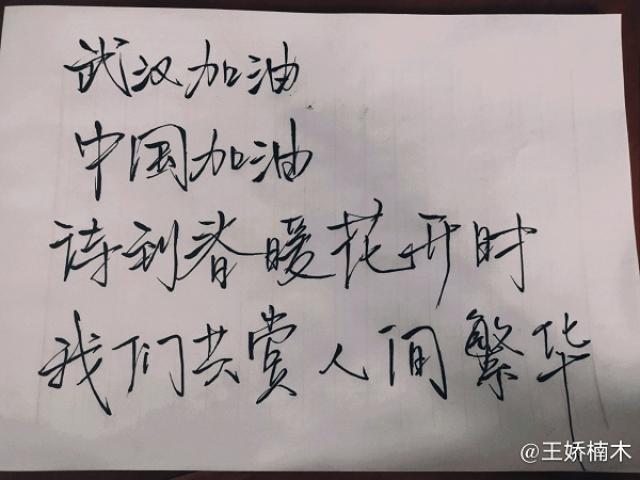 武汉加油
中国加油
诗到春暖花开时
我们共赏人间繁华
@王娇楠木